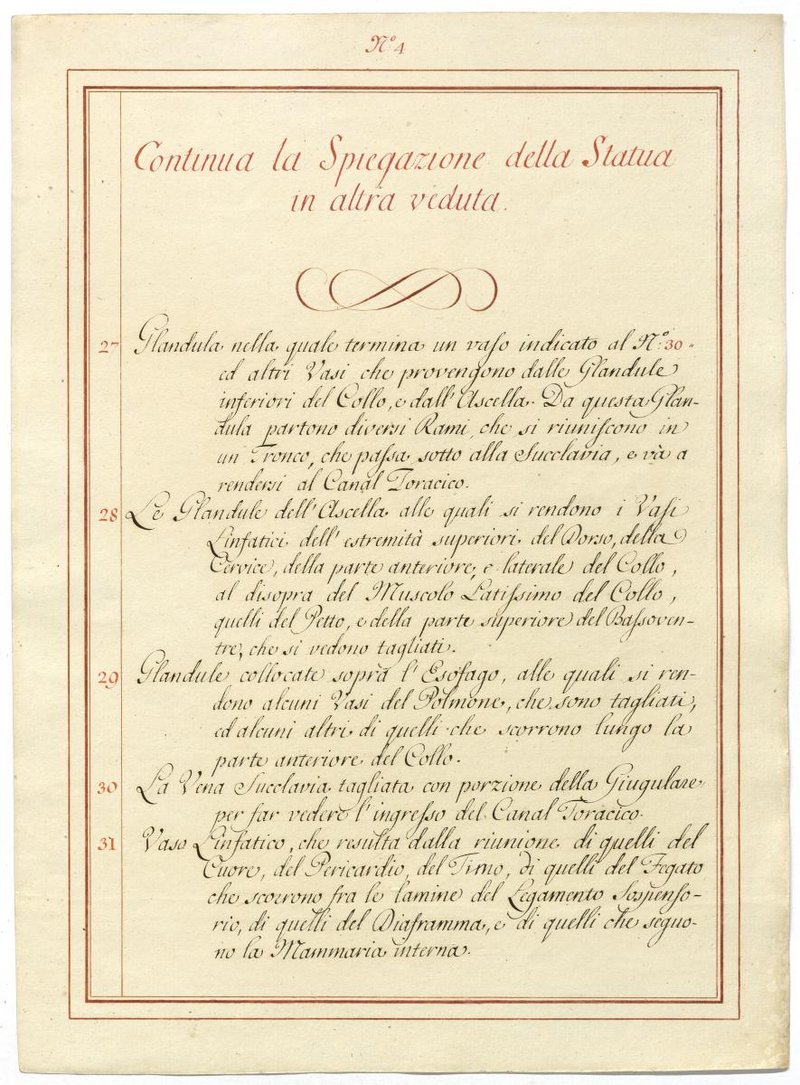 N.º 4
Continua la Spiegazione della Statua
in altra veduta.
27 Glandula nella quale termina un vaſo indicato al N.º 30.
ed altri Vasi che provengono dalle Glandule
inferiori del Collo, e dall'Ascella. Da questa Glan-
dula partono diversi Rami, che si riuniſcono in
un Tronco, che paſsa sotto alla Succlavia, e và a
rendersi al Canal Toracico.
28 Le Glandule dell'Ascella alle quali si rendono i Vaſi
Linfatici dell'estremità superiori, del Dorso, della
Cervice, della parte anteriore, e laterale del Collo,
al disopra del Muscolo Latiſsimo del Collo,
quelli del Petto, e della parte superiore del Baſsoven-
tre, che si vedono tagliati.
29 Glandule collocate soprà l'Esofago, alle quali si ren-
dono alcuni Vasi del Polmone, che sono tagliati,
ed alcuni altri di quelli che scorrono lungo la
parte anteriore del Collo.
30 La Vena Succlavia tagliata con porzione della Giugulare
per far vedere l'ingreſso del Canal Toracico.
31 Vaso Linfatico, che resulta dalla riunione di quelli del
Cuore, del Pericardio, del Timo, di quelli del Fegato
che scorrono fra le lamine del Legamento Sospenſo-
rio, di quelli del Diaframma, e di quelli che seguo-
no la Mammaria interna.